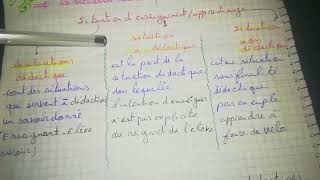 la situation
Situation d'enseignement/apprentissage
situations
didactique
sont des situations
qui servent à didactiser
un savoir donné
Enseignant - Elève
savoirs)
situation
a-didactique
est la part de la
situation didactique
dans laquelle
l'intention d'enseigner
n'est pas explicite
au regard de l'élève
situation
non
didactique
est une situation
sans finalité
didactique
par exemple
apprendre à
faire du vélo